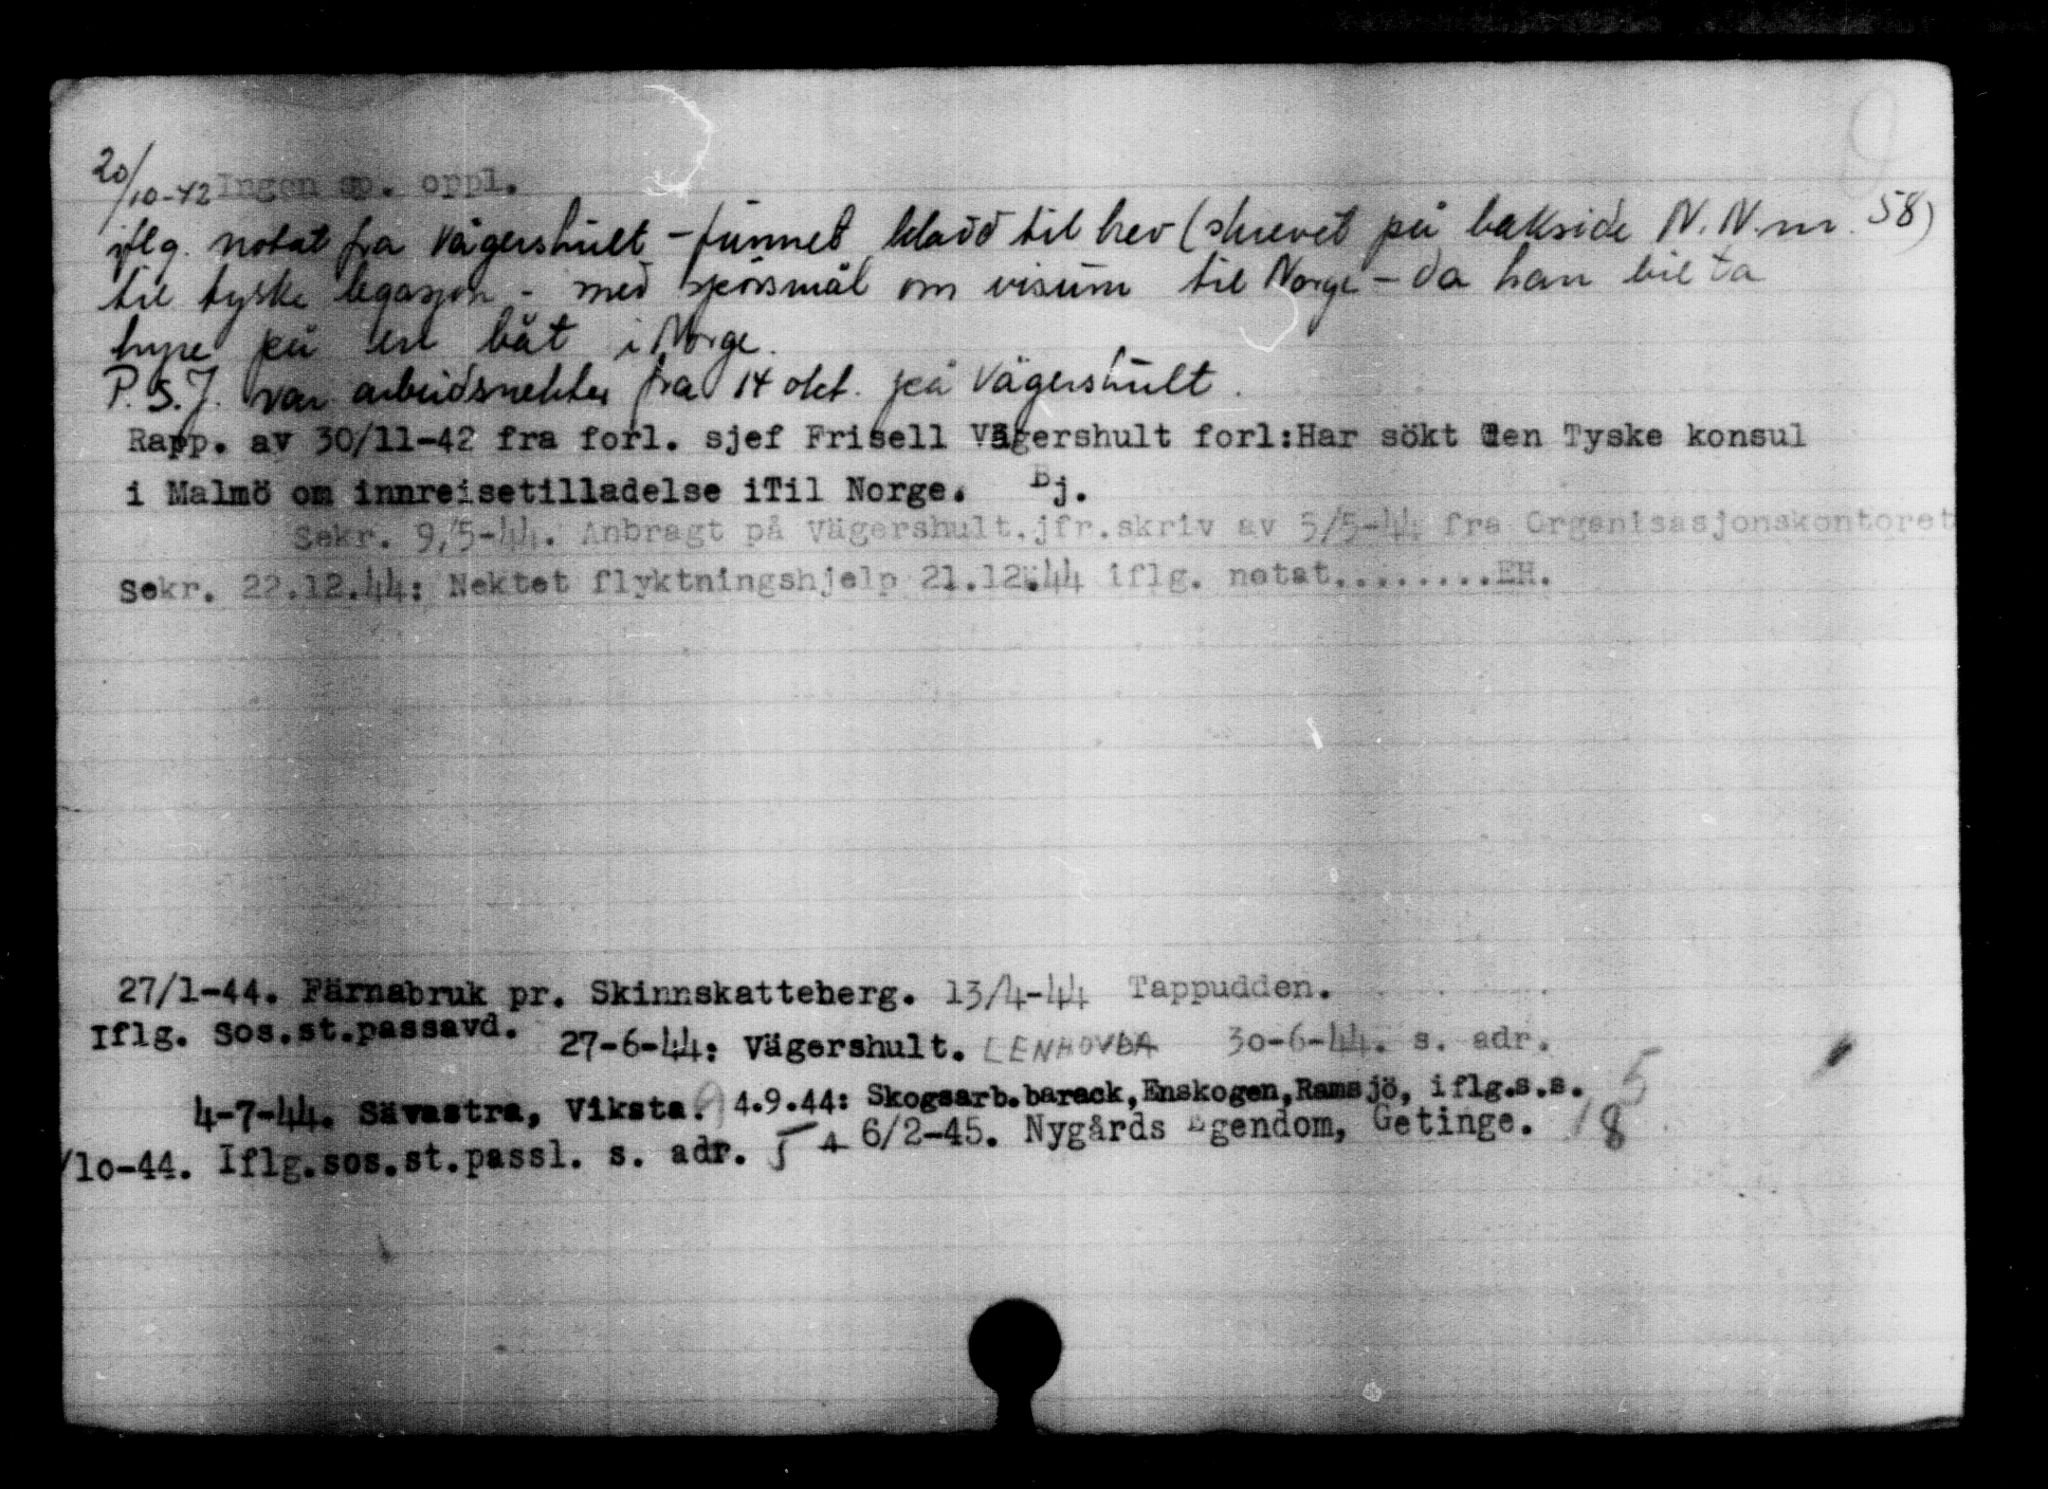 20/10-42 Ingen sp. oppl.
iflg. notat fra Vägershult - funnet kladd til brev (skrevet på bakside N.N. nr. 58)
til tyske legasjon - med spörsmål om visum til Norge - da han vil ta
hyre på en båt i Norge.
P.S.J. var arbeidsnekter fra 14 okt. på Vägershult.
Rapp. av 30/11-42 fra forl. sjef Frisell Vägershult forl:Har sökt den Tyske konsul
i Malmö om innreisetilladelse iTil Norge. Bj.
Sekr. 9/5-44. Anbragt på Vägershult.jfr.skriv av 5/5-44 fra Organisasjonskontoret
Sekr. 22.12.44: Nektet flyktningshjelp 21.12.44 iflg. notat........EH.
27/1-44. Färnabruk pr. Skinnskatteberg. 13/4-44 Tappudden.
Iflg. Sos.st.passavd. 27-6-44: Vägershult. LENHOVDA 30-6-44. s. adr.
4-7-44. Sävastra, Viksta. 4.9.44: Skogsarb.barack,Enskogen,Ramsjö, iflg.s.s. 5
/10-44. Iflg.sos.st.passl. s. adr. 6/2-45. Nygårds Egendom, Getinge. 18